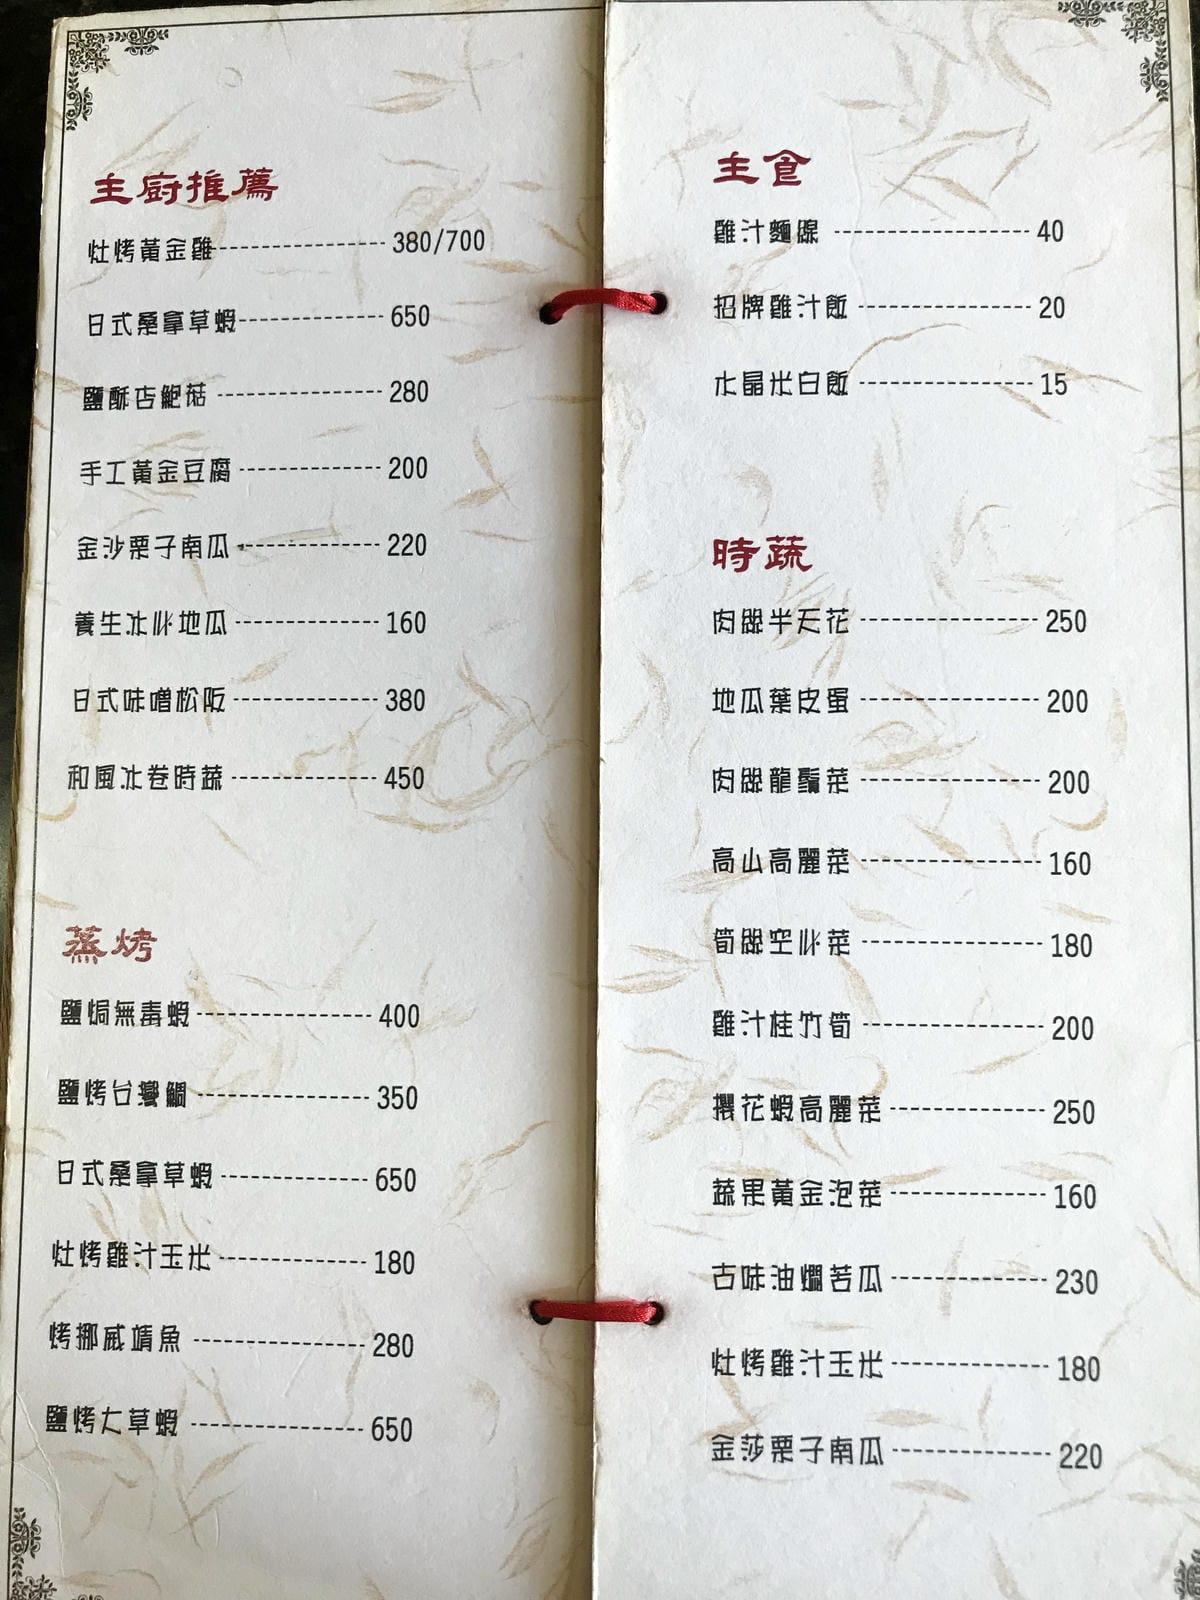 主廚推薦
灶烤黃金雞 380/700
日式桑拿草蝦 650
鹽酥杏鮑菇 280
手工黃金豆腐 200
金沙栗子南瓜 220
養生冰心地瓜 160
日式味噌松阪 380
和風冰卷時蔬 450
蒸烤
鹽焗無毒蝦 400
鹽烤台灣鯛 350
日式桑拿草蝦 650
灶烤雞汁玉米 180
烤挪威鯖魚 280
鹽烤大草蝦 650
主食
雞汁麵線 40
招牌雞汁飯 20
水晶米白飯 15
時蔬
肉絲半天花 250
地瓜葉皮蛋 200
肉絲龍鬚菜 200
高山高麗菜 160
筍絲空心菜 180
雞汁桂竹筍 200
撰花蝦高麗菜 250
蔬果黃金泡菜 160
古味油燜苦瓜 230
灶烤雞汁玉米 180
金莎栗子南瓜 220